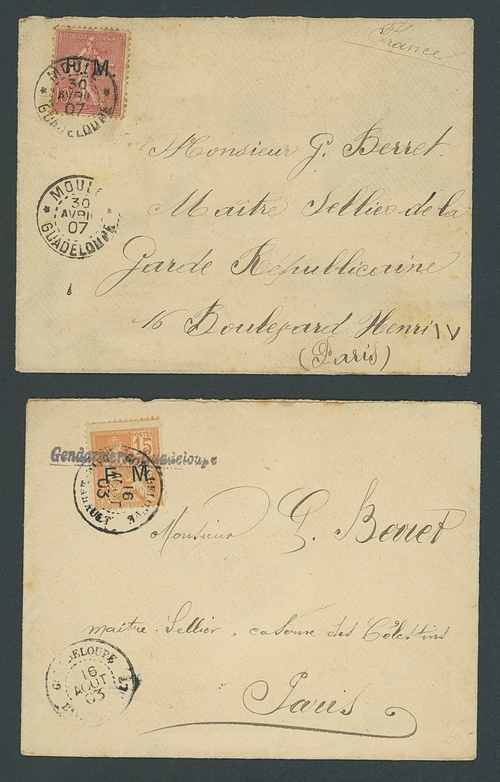 France
F M.
10
MOUL
30
AVRIL
07
GUADELOUPE
MOUL
30
AVRIL
07
GUADELOUPE
Monsieur G. Berret
Maître Sellier de la
Garde Républicaine
16 Boulevard Henri IV
(Paris)
POSTES
15
Gendarmerie Guadeloupe
F M
16
03
Monsieur G. Berret
maître-Sellier, caserne des Célestins
Paris
GUADELOUPE
16
AOUT
03